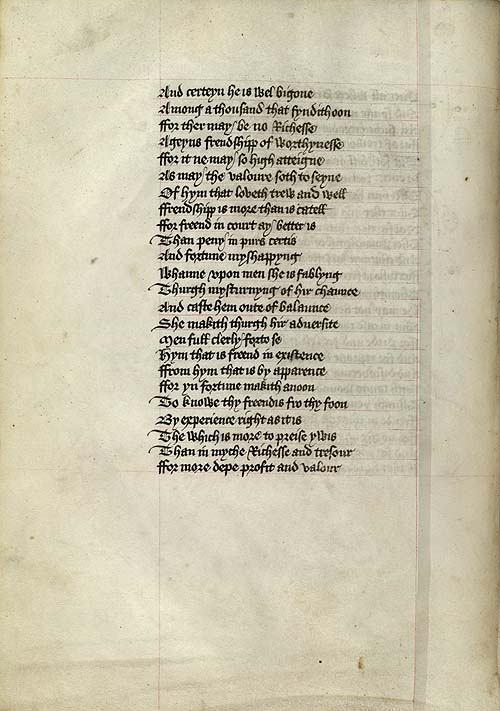 And certeyn he is wel bigone
Among a thousand that fyndith oon
ffor ther may be no Richesse
Ageyns frendshipp of worthynesse
ffor it ne may so high atteigne
As may the valoure soth to seyne
Of hym that loveth trew and well
ffrendshipp is more than is catell
ffor freend in court ay better is
Than peny in purs certis
And fortune myshappyng
Whanne vpon men she is fablyng
Thurgh mysturnyng of hir chaunce
And caste hem oute of balaunce
She makith thurgh hir adversite
Men full clerly forto se
Hym that is freend in existence
ffrom hym that is by apparence
ffor yn fortune makith anoon
To knowe thy freendis fro thy foon
By experience right as it is
The which is more to preise ywis
Than in myche Richesse and tresour
ffor more depe profit and valour